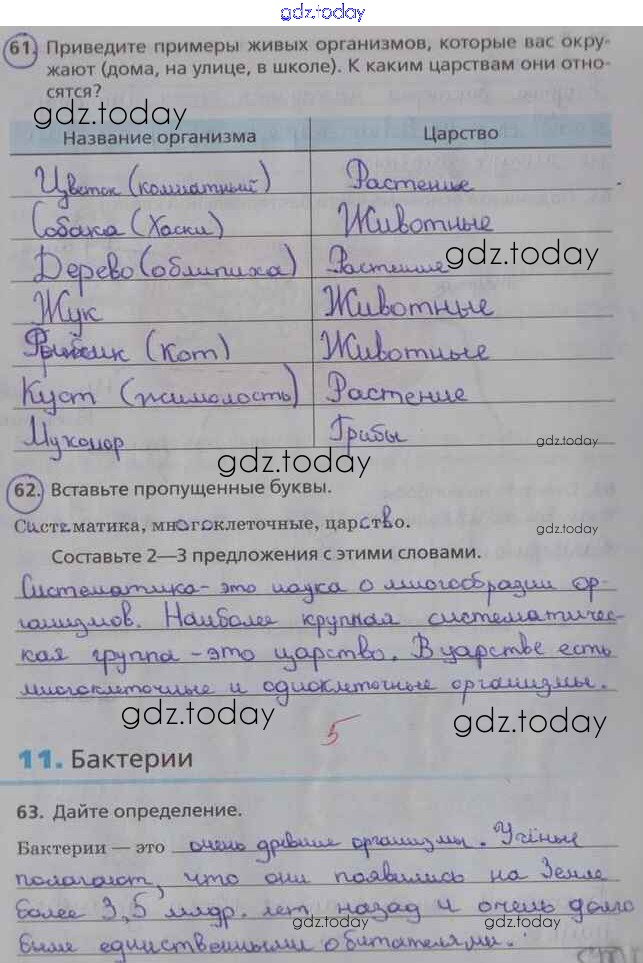 gdz.today
61. Приведите примеры живых организмов, которые вас окру-
жают (дома, на улице, в школе). К каким царствам они отно-
сятся?
gdz.today
Название организма Царство
Цветок (комнатный) Растение
Собака (Хаски) Животные
Дерево (облипиха) Растение gdz.today
Жук Животные
(Кот) Животные
Куст (жимолость) Растение
Мухомор Грибы
gdz.today gdz.today
62. Вставьте пропущенные буквы.
Систематика, многоклеточные, царство.
gdz.today
Составьте 2—3 предложения с этими словами.
Систематика - это наука о многообразии ор-
ганизмов. Наиболее крупная систематичес-
кая группа - это царство. В царстве есть
многоклеточные и одноклеточные организмы.
gdz.today gdz.today
5
11. Бактерии
63. Дайте определение.
Бактерии — это очень древние организмы. Учёные
полагают, что они появились на Земле
более 3,5 млдр. лет назад и очень долго
gdz.today gdz.today
были единственными обитателями.